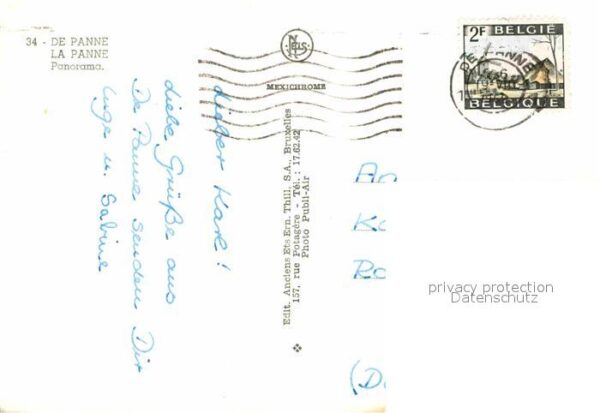 34 - DE PANNE
LA PANNE
Panorama.
NELS
MEXICHROME
2F BELGIË
BELGIQUE
DE PANNE
Lieber Karl!
Liebe Grüße aus
De Panne senden Dir
Inge u. Sabine
Edit. Anciens Ets Ern. Thill, S.A., Bruxelles
157, rue Potagère - Tél. : 17.62.42
Photo Publi-Air
An
K
Ro
(D
privacy protection
Datenschutz